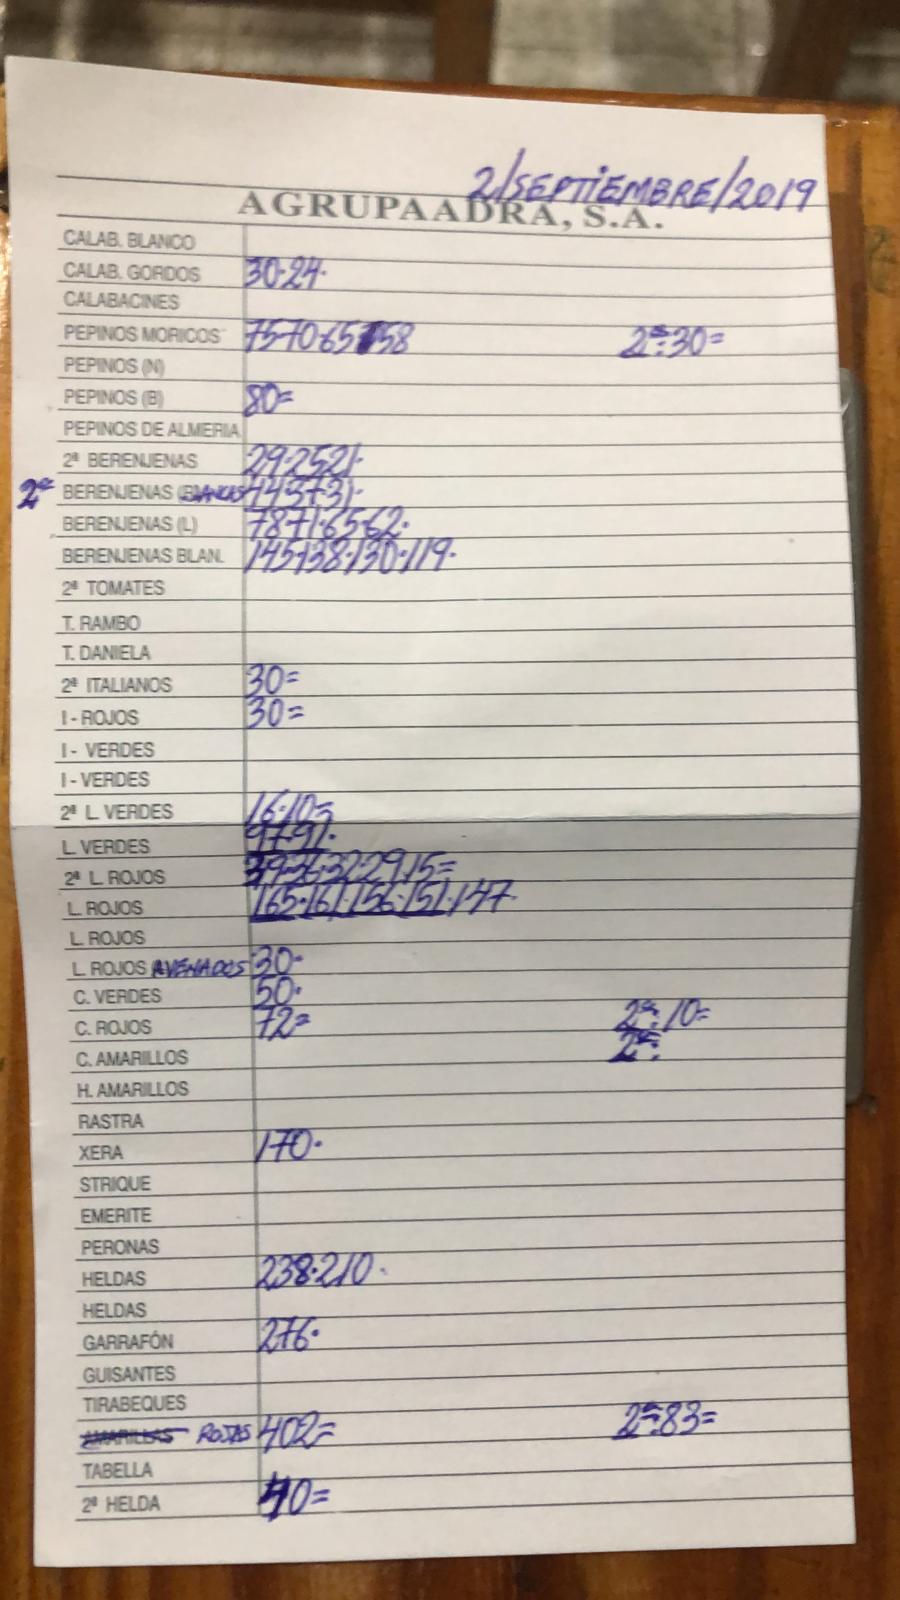 2/SEPTIEMBRE/2019
AGRUPAADRA, S.A.
CALAB. BLANCO
CALAB. GORDOS 30·24·
CALABACINES
PEPINOS MORICOS 75·70·65·58 2ª:30=
PEPINOS (N)
PEPINOS (B) 80=
PEPINOS DE ALMERIA
2ª BERENJENAS 29·25·21·
2ª BERENJENAS (BLANCAS 44·37·31·
BERENJENAS (L) 78·71·65·62·
BERENJENAS BLAN. 145·138·130·119·
2ª TOMATES
T. RAMBO
T. DANIELA
2ª ITALIANOS 30=
I - ROJOS 30=
I - VERDES
I - VERDES
2ª L. VERDES 16·10=
L. VERDES 97·91·
2ª L. ROJOS 39·36·32·29·15=
L. ROJOS 165·161·156·151·147
L. ROJOS
L. ROJOS AVENADOS 30·
C. VERDES 50·
C. ROJOS 72= 2ª:10=
C. AMARILLOS 2ª:
H. AMARILLOS
RASTRA
XERA 170·
STRIQUE
EMERITE
PERONAS
HELDAS 238·210·
HELDAS
GARRAFÓN 276·
GUISANTES
TIRABEQUES
AMARILLAS ROJAS 402= 2ª:83=
TABELLA
2ª HELDA 40=